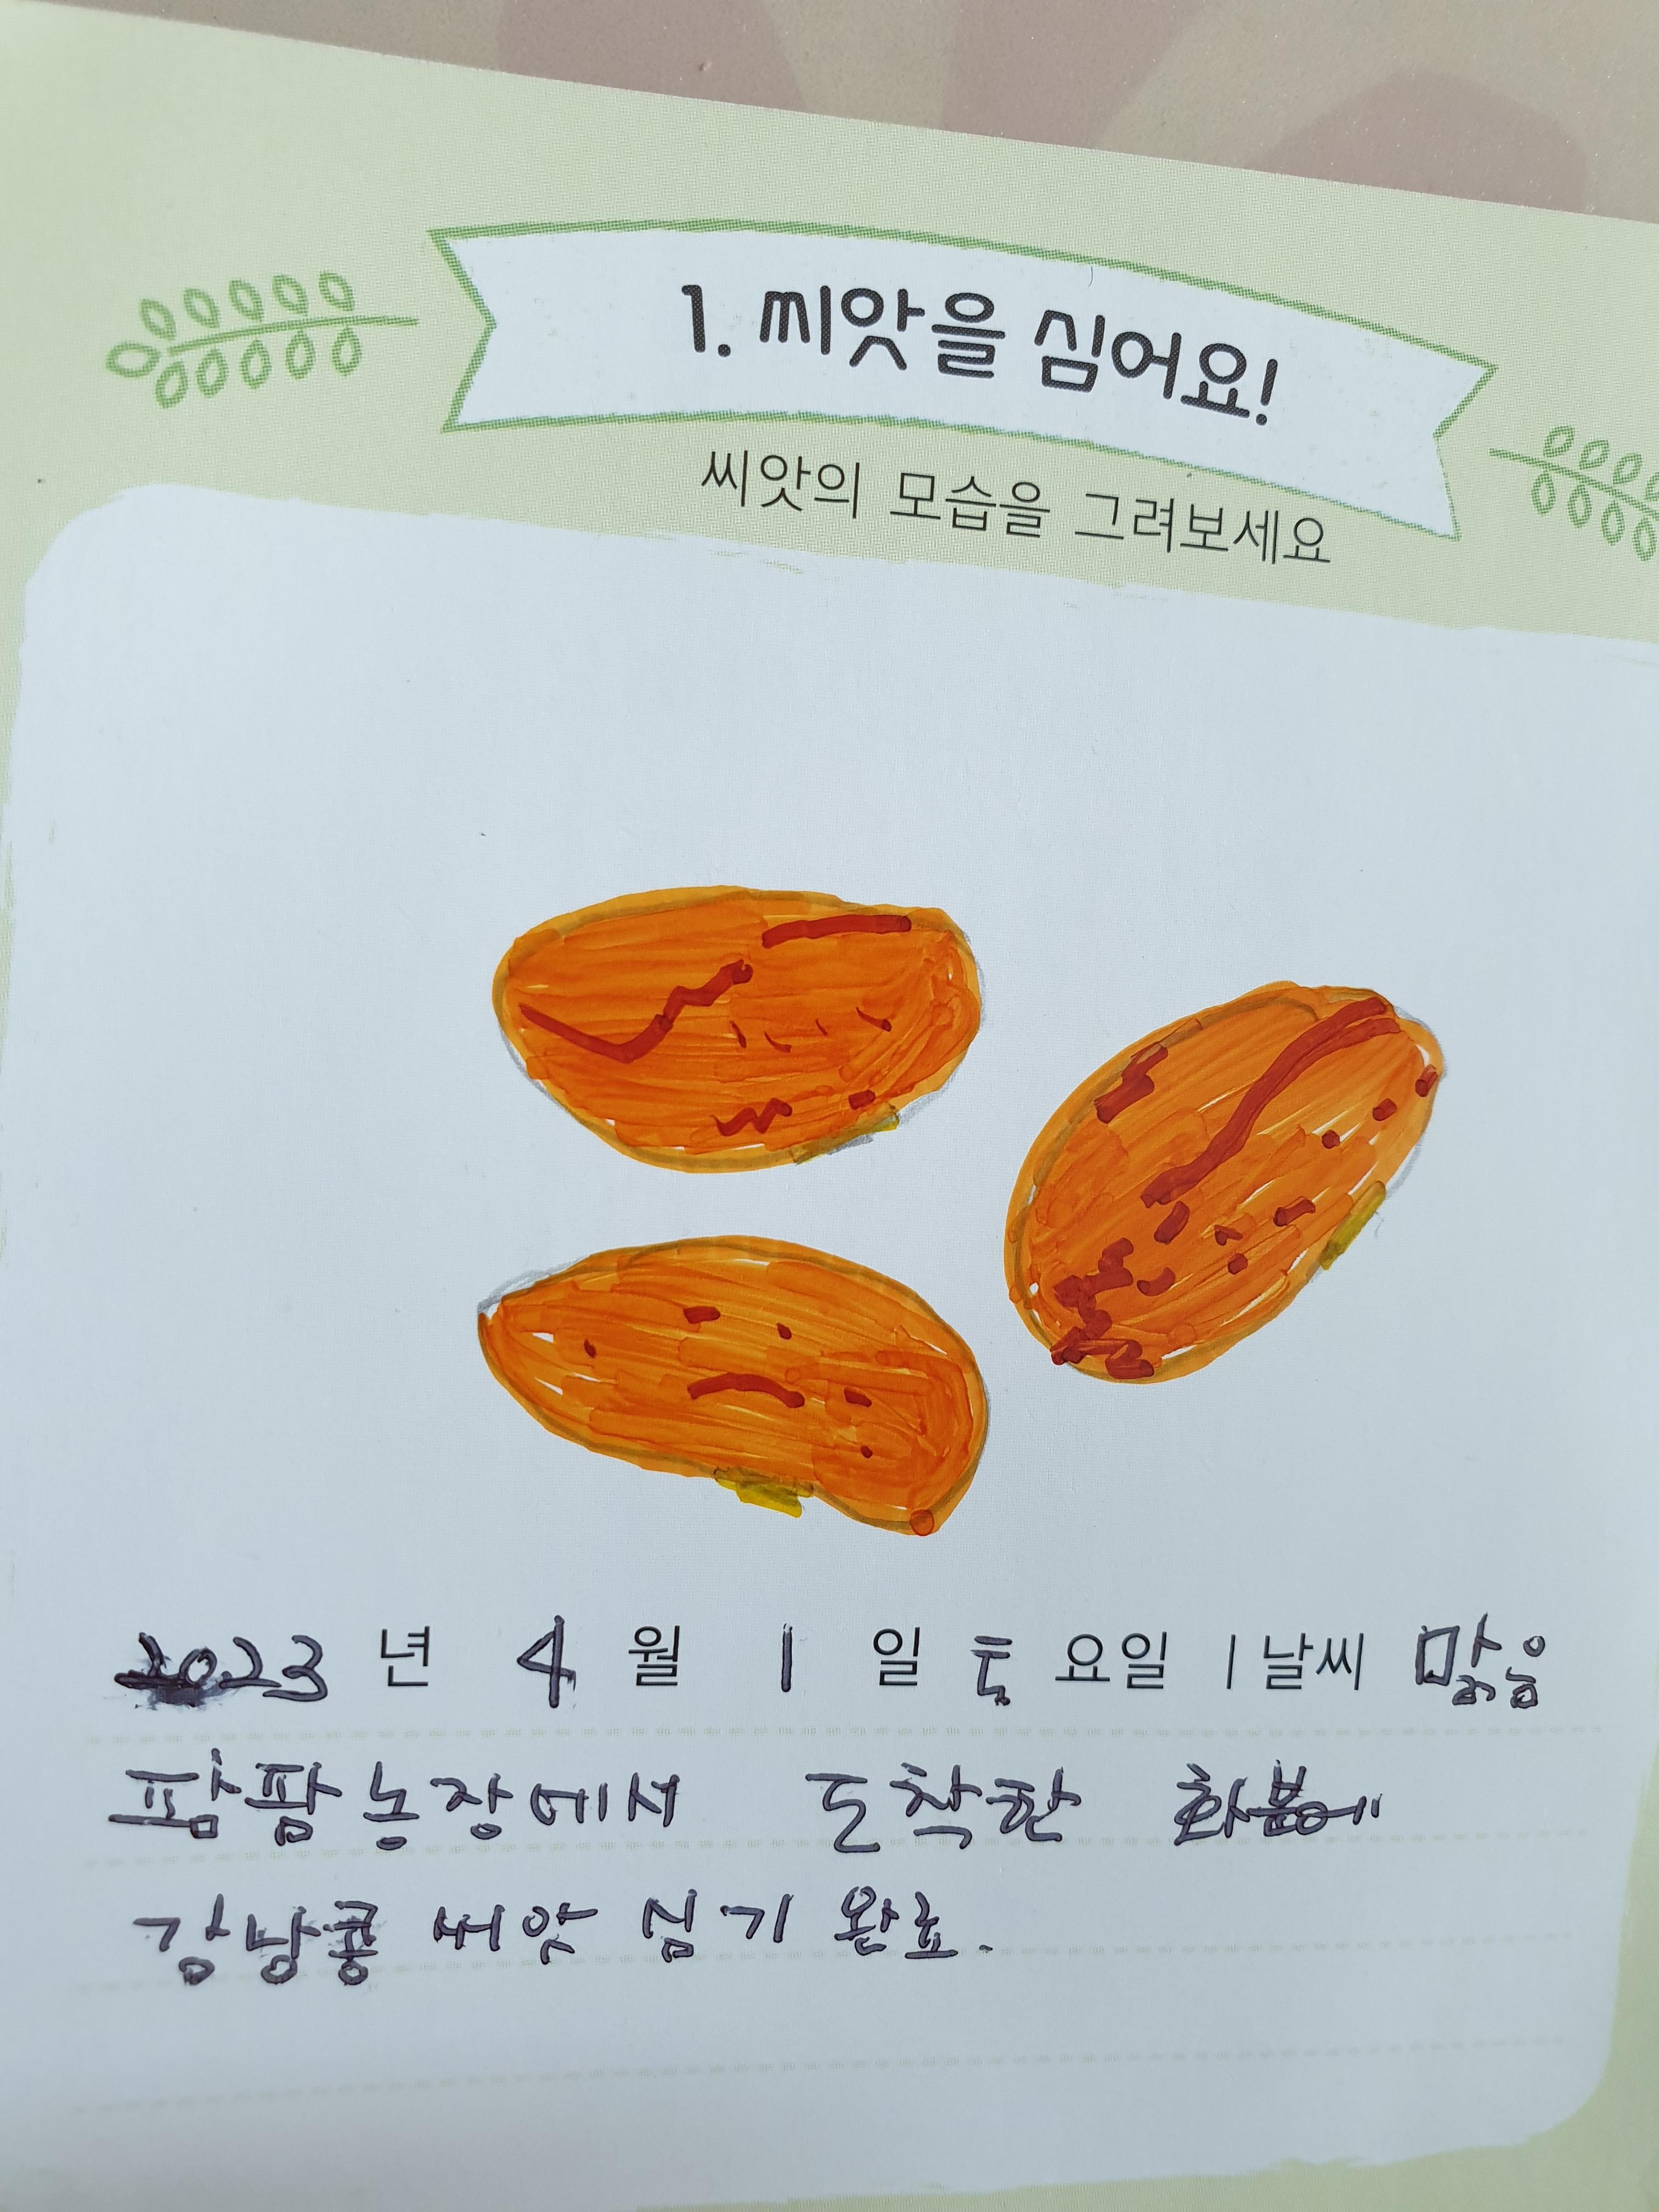 1. 씨앗을 심어요!
씨앗의 모습을 그려보세요
2023 년 4 월 1 일 토 요일 | 날씨 맑음
팜팜농장에서 도착한 화분에
강낭콩 씨앗 심기 완료.